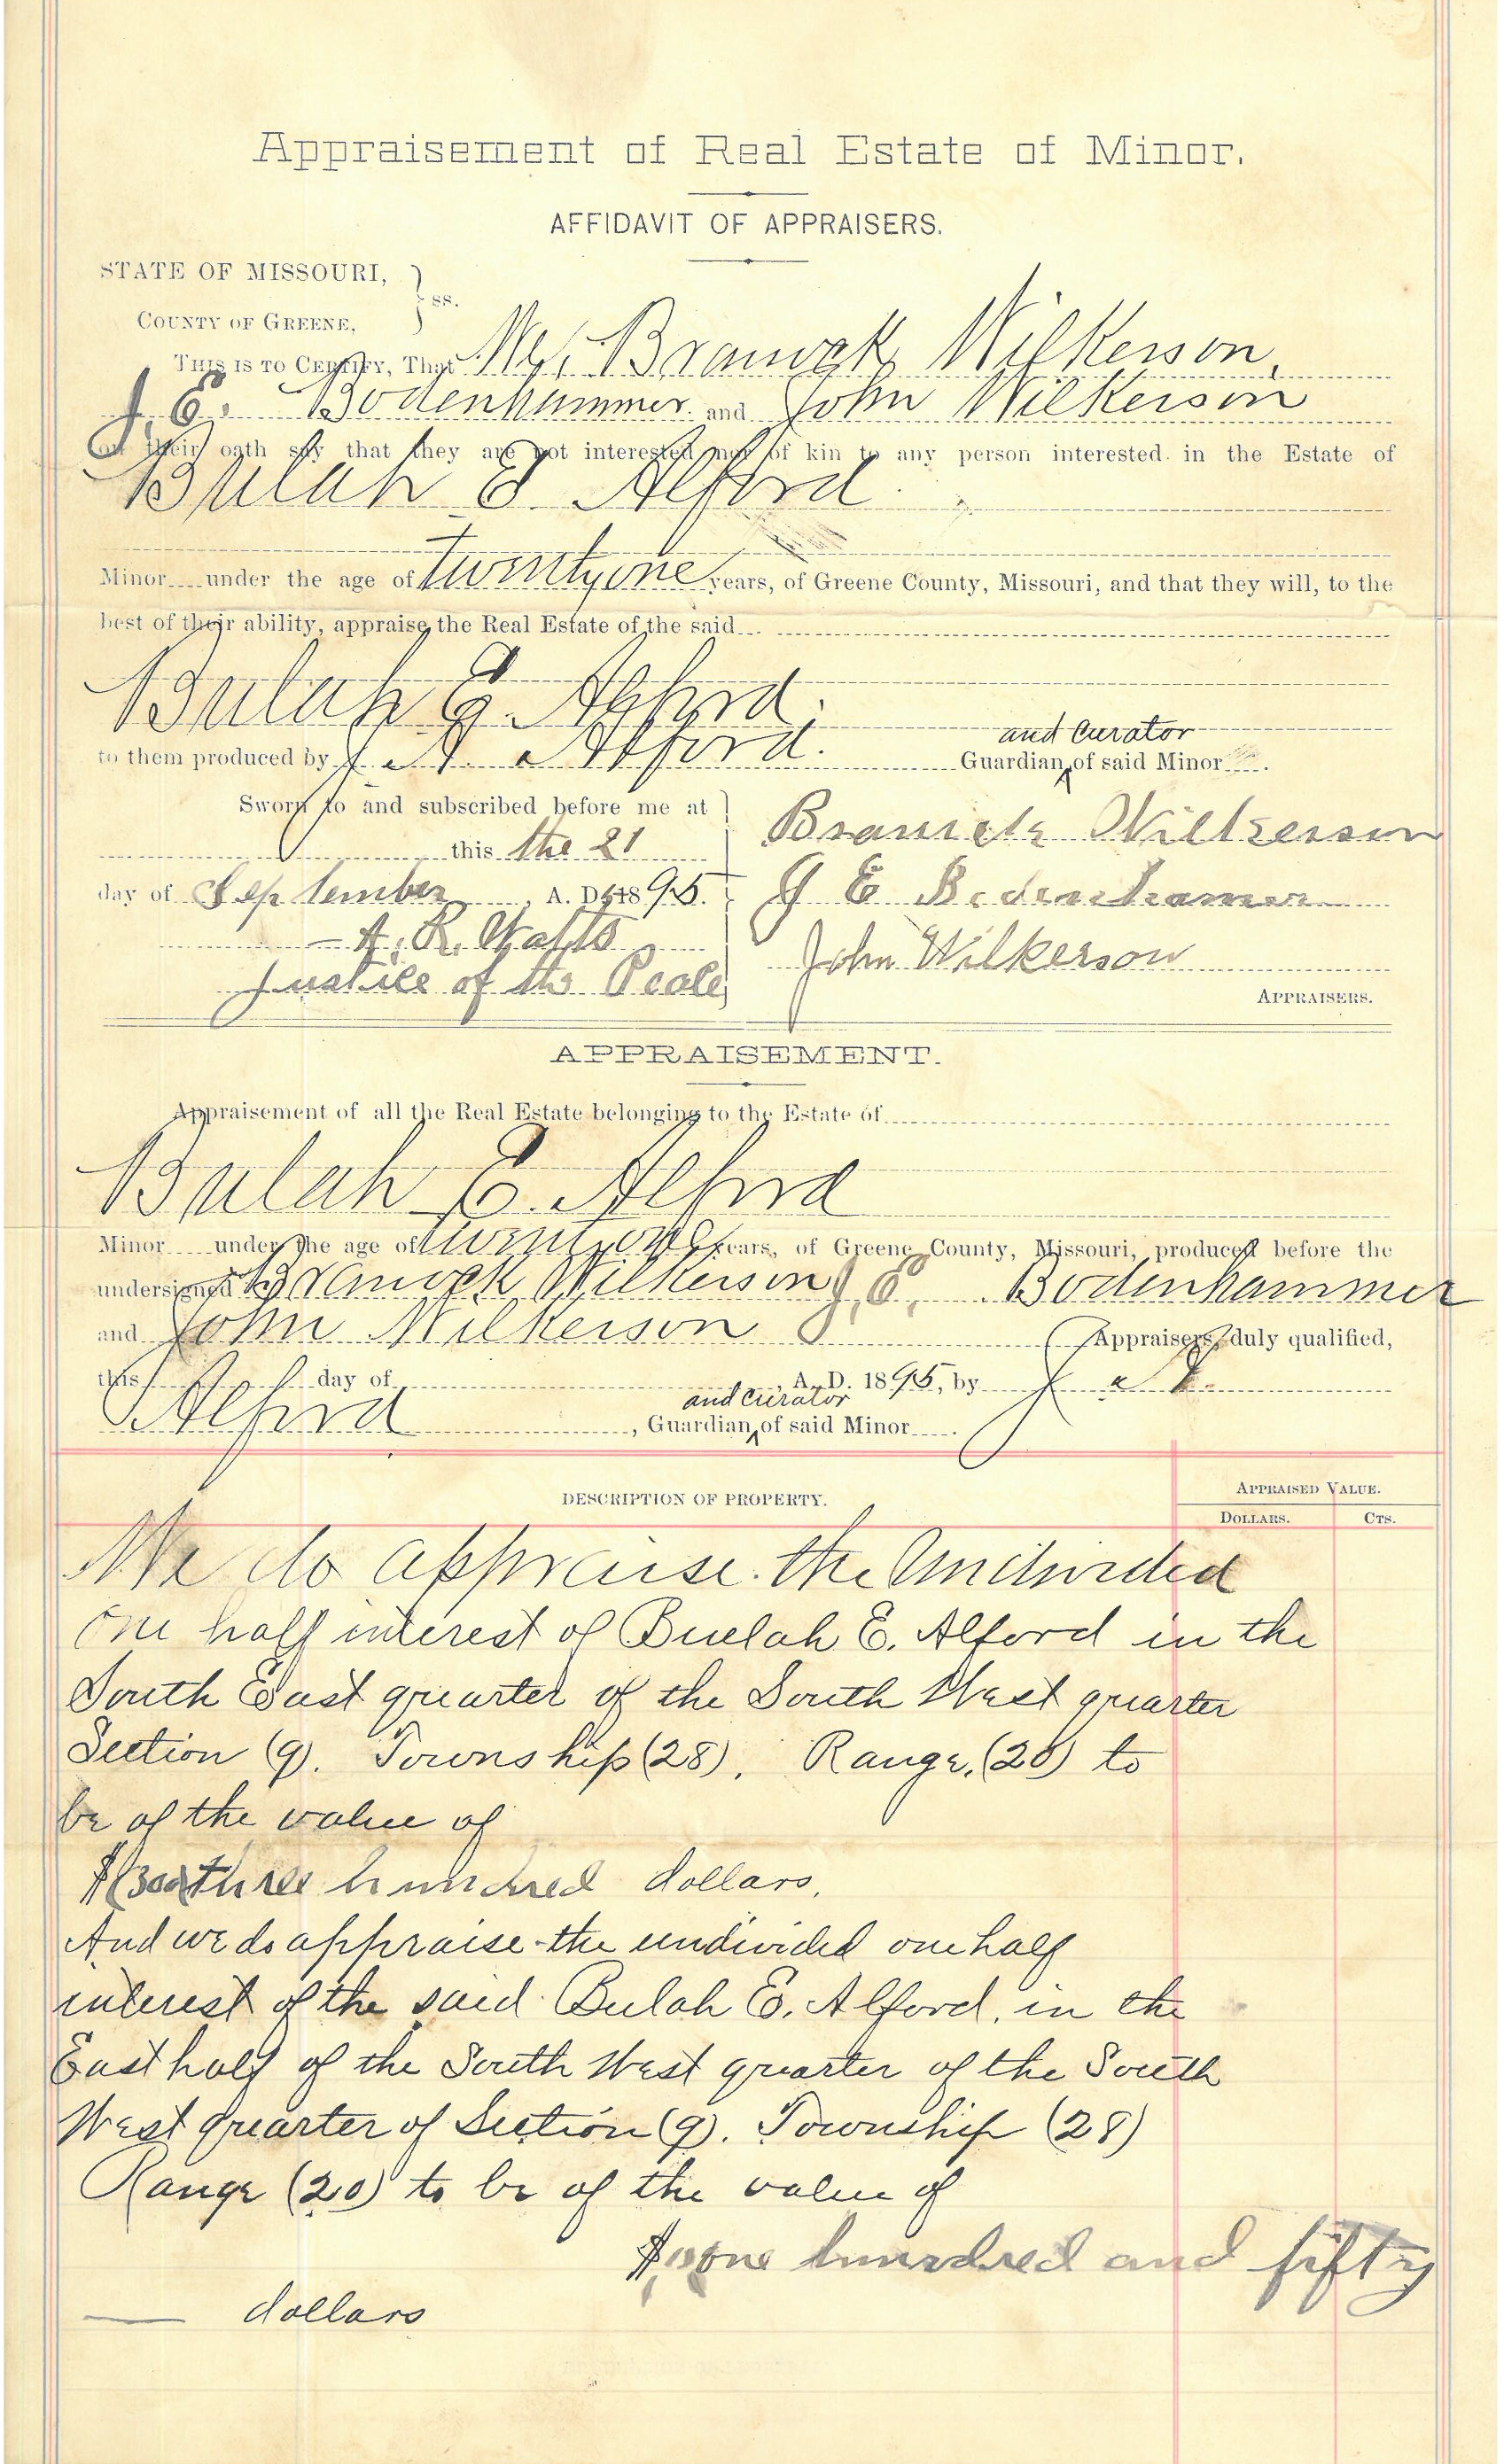 Appraisement of Real Estate of Minor.
AFFIDAVIT OF APPRAISERS.
STATE OF MISSOURI,
COUNTY OF GREENE, } ss.
THIS IS TO CERTIFY, That We, Branock Wilkerson,
J. E. Bodenhammer and John Wilkerson
on their oath say that they are not interested nor of kin to any person interested in the Estate of
Bulah E Alford
Minor under the age of twenty one years, of Greene County, Missouri, and that they will, to the
best of their ability, appraise the Real Estate of the said
Bulah E. Alford.
and curator
to them produced by J. A. Alford. Guardian ^ of said Minor
Sworn to and subscribed before me at
this the 21
day of September, A. D. 1895.
A. R. Watts
Justice of the Peace
Branick Wilkerson
J E Bodenhamer
John Wilkerson
APPRAISERS.
APPRAISEMENT.
Appraisement of all the Real Estate belonging to the Estate of
Bulah E. Alford
Minor under the age of twenty one years, of Greene County, Missouri, produced before the
undersigned Branock Wilkerson J. E. Bodenhammer
and John Wilkerson Appraisers, duly qualified,
this day of A. D. 1895, by J. A.
and curator
Alford, Guardian ^ of said Minor
DESCRIPTION OF PROPERTY.
APPRAISED VALUE.
DOLLARS. CTS.
We do appraise the Undivided
One half interest of Buelah E. Alford in the
South East quarter of the South West quarter
Section (9). Township (28). Range, (20) to
be of the value of
$(300) three hundred dollars.
And we do appraise the undivided one half
interest of the said Bulah E. Alford, in the
East half of the South West quarter of the South
West quarter of Section (9). Township (28)
Range (20) to be of the value of
$ one hundred and fifty
dollars